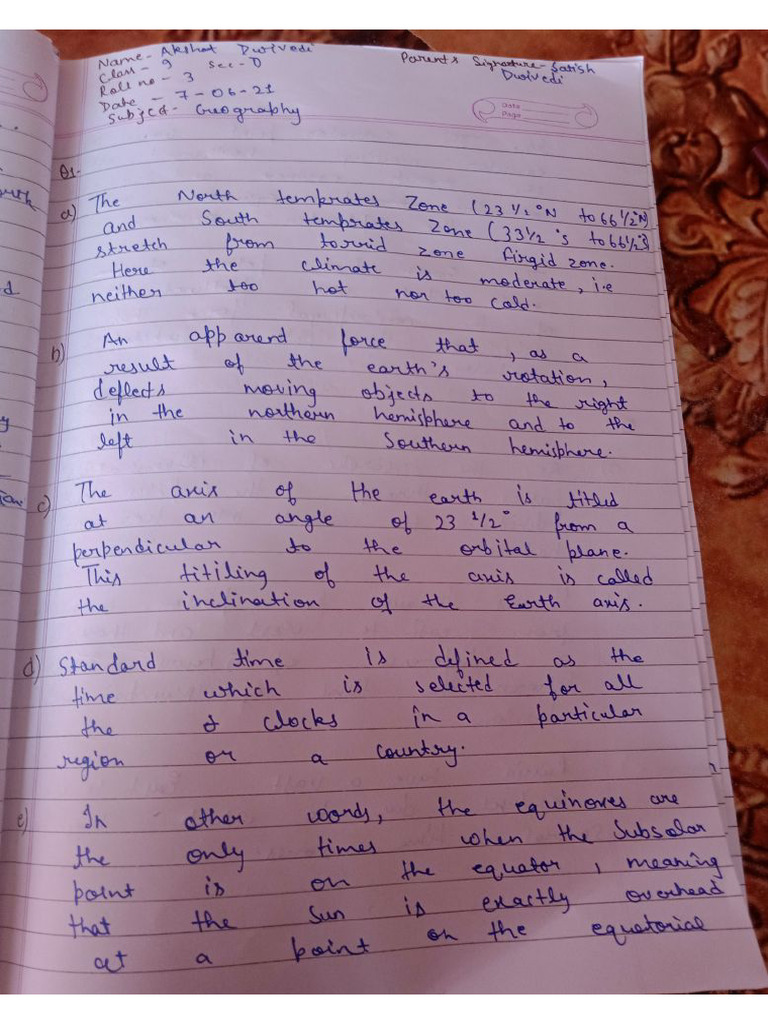 Name- Akshat Dwivedi
Class- 9 Sec- D
Roll no - 3
Date - 7-06-21
Subject- Geography
Parents Signature- Satish
Dwivedi
Date
Page
Q1-
a) The North temprates Zone (23 1/2 °N to 66 1/2°N)
and South temprates Zone (33 1/2 °s to 66 1/2°S)
stretch from torrid zone firgid zone.
Here the climate is moderate, i.e
neither too hot nor too cold.
b) An apparend force that, as a
result of the earth's rotation,
deflects moving objects to the right
in the northern hemisphere and to the
left in the Southern hemisphere.
c) The axis of the earth is titled
at an angle of 23 1/2° from a
perpendicular to the orbital plane.
This titiling of the axis is called
the inclination of the Earth axis.
d) Standard time is defined as the
time which is selected for all
the clocks in a particular
region or a country.
e) In other words, the equinoxes are
the only times when the Subsolar
point is on the equator, meaning
that the Sun is exactly overhead
at a point on the equatorial